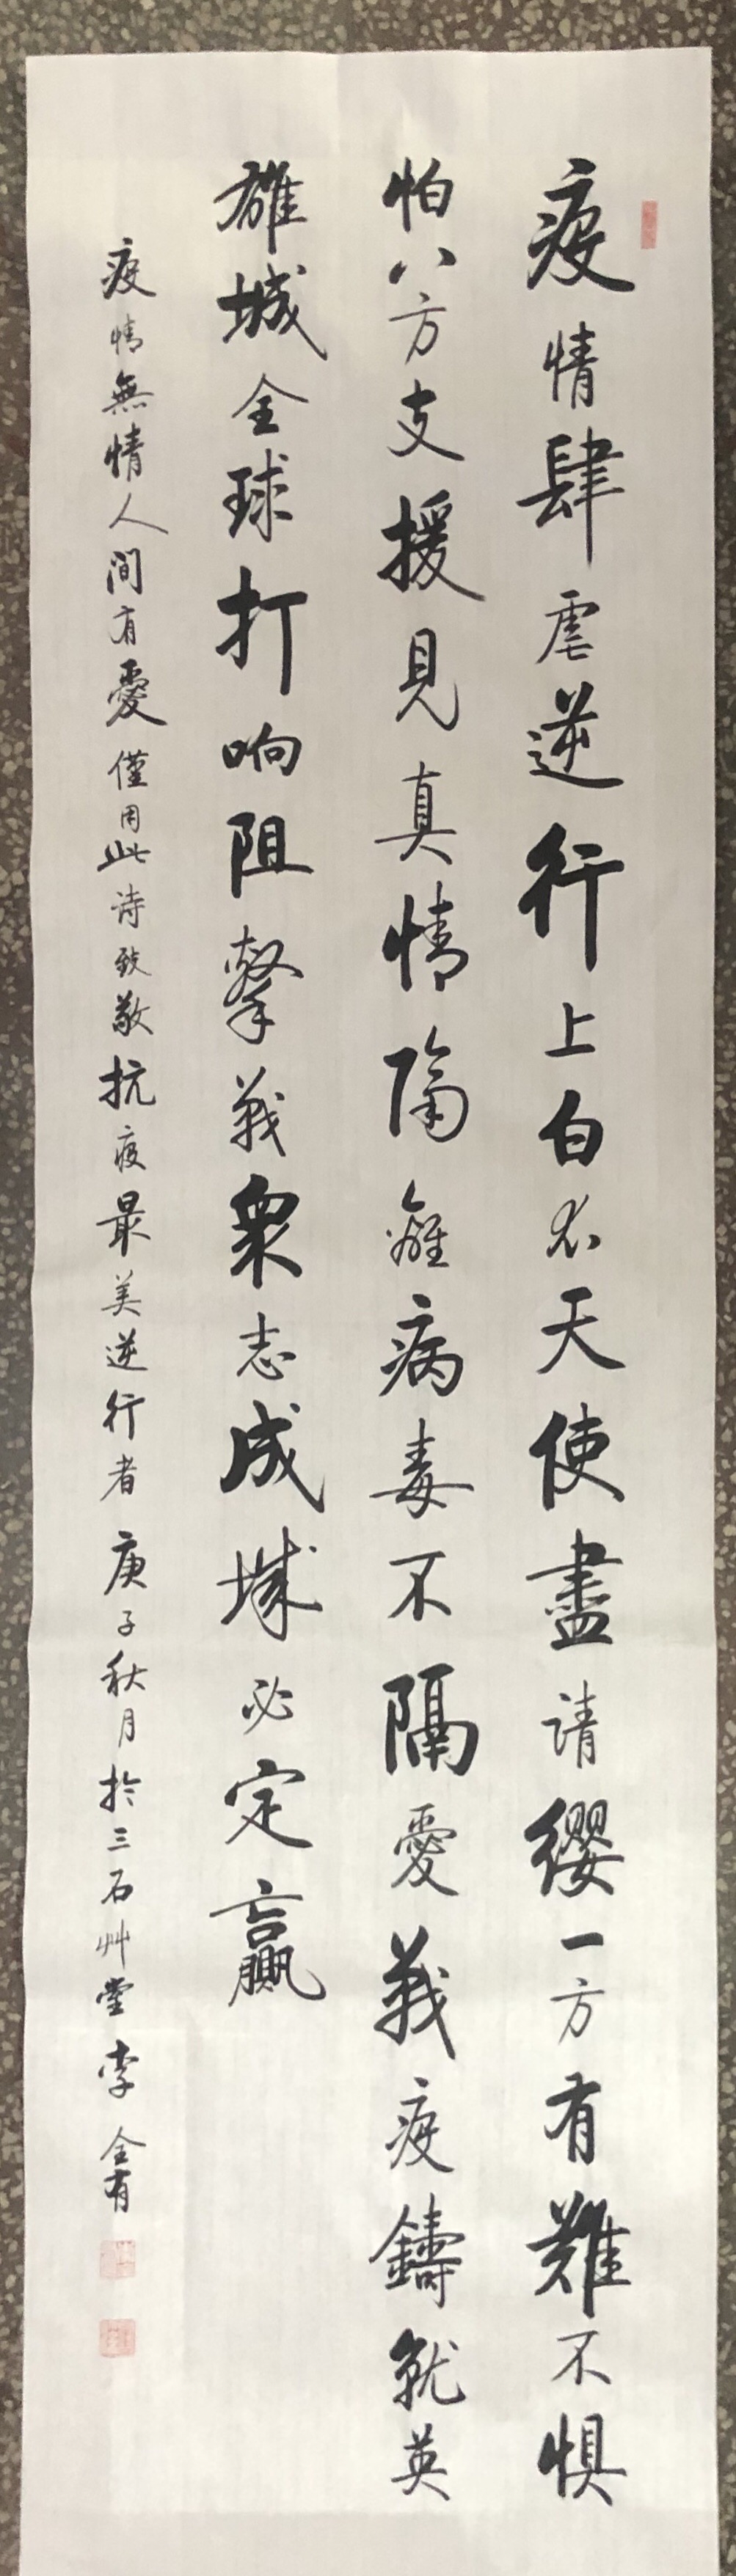 疫情肆虐逆行上白衣天使盡请缨一方有難不惧
怕八方支援見真情隔離病毒不隔愛義疫鑄就英
雄城全球打响阻擊義衆志成城必定贏
疫情無情人间有愛僅用此诗致敬抗疫最美逆行者庚子秋月於三石艸堂李全有